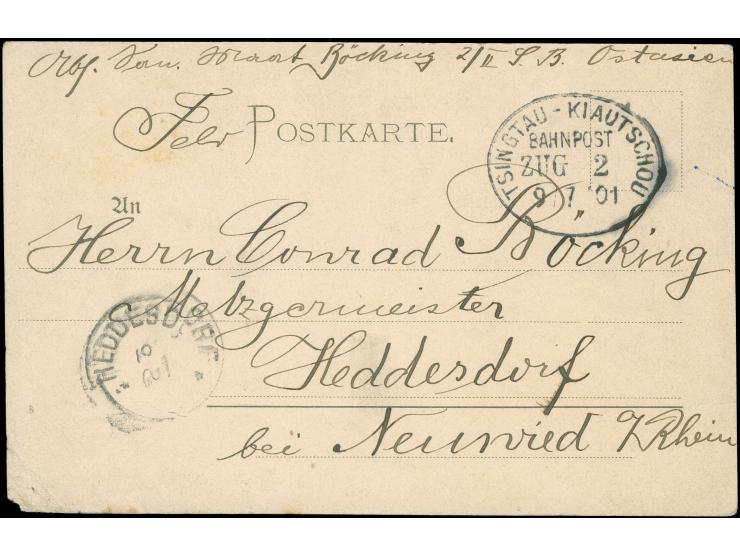 Böcking 2/II S. B. Ostasien
Feld POSTKARTE.
TSINGTAU - KIAUTSCHOU
BAHNPOST
ZUG 2
9/7 01
An
Herrn Conrad Böcking
Metzgermeister
HEDDESDORF
Heddesdorf
bei Neuwied a/Rhein